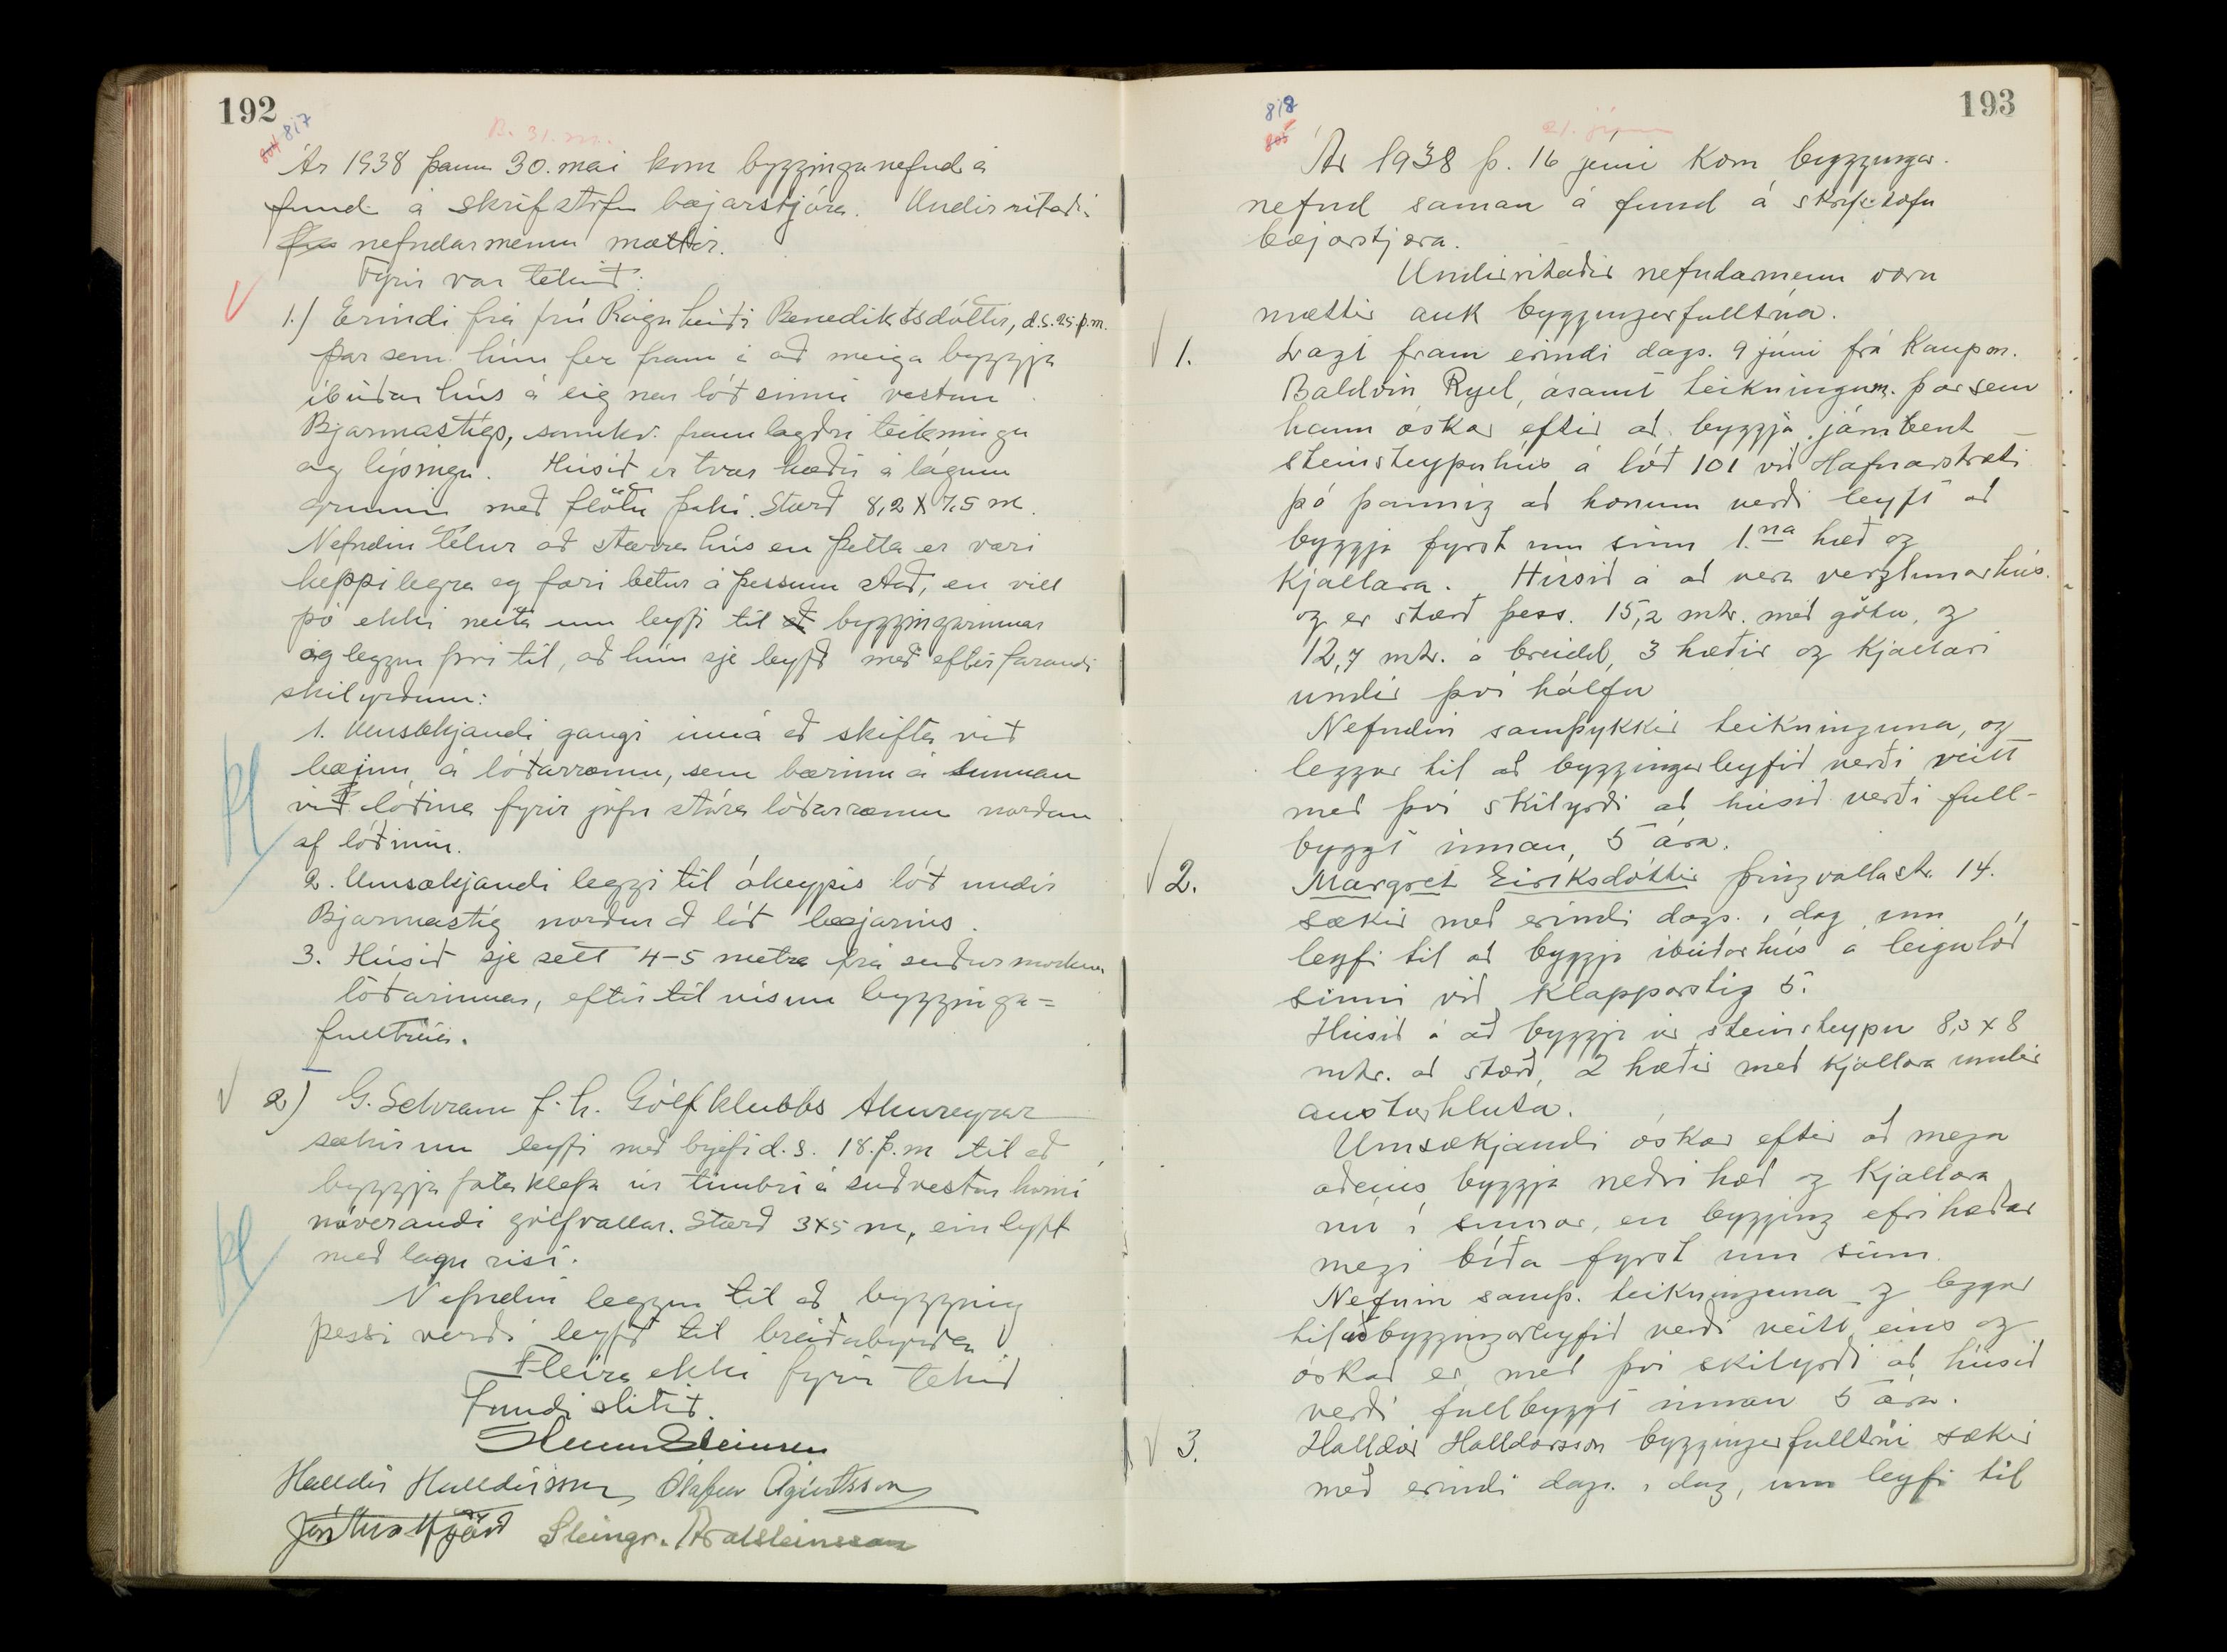 192
817
B. 31. m.
Ár 1938 þann 30. mai kom bygginganefnd á
fund á skrifstofu bæjarstjóra. Undirritaðir
nefndarmenn mættir.
Fyrir var tekið:
1.) Erindi frá frú Ragnheiði Benediktsdóttir, d.s. 25 þ.m.
þar sem hún fer fram á að meiga byggja
íbúðarhús á eignarlóð sinni vestan
Bjarmastígs, samkv. framlagðri teikningu
og lýsingu. Húsið er tvær hæðir á lágum
grunni með flötu þaki. Stærð 8,2 x 7,5 m.
Nefndin telur að stærra hús en þetta er væri
heppilegra og færi betur á þessum stað, en vill
þó ekki neita um leyfi til byggingarinnar
og leggur því til, að hún sje leyfð með eftirfarandi
skilyrðum:
1. Umsækjandi gangi inná að skifta við
bæjinn á lóðarræmu, sem bærinn á sunnan
við lóðina fyrir jöfn stóra lóðarræmu norðan
af lóðinni.
2. Umsækjandi leggi til ókeypis lóð undir
Bjarmastíg norður að lóð bæjarins.
3. Húsið sje sett 4-5 metra frá suðurmörkum
lóðarinnar, eftir tilvísun bygginga=
fulltrúa.
2) G. Schram f.h. Gólfklubbs Akureyrar
sækir um leyfi með brjefi d.s. 18. þ.m til að
byggja fataklefa úr timbri á suðvestur horni
núverandi gólfvallar. Stærð 3x5 m, einlyft
með lágu risi.
Nefndin leggur til að bygging
þessi verði leyfð til bráðabyrgða
Fleira ekki fyrir tekið
Fundi slitið.
Steinn Steinsen
Halldór Halldórsson Ólafur Ágústsson
Steingr. Aðalsteinsson
193
818
805
21. júní
Ár 1938 þ. 16 júni kom bygginga-
nefnd saman á fund á skrifstofu
bæjarstjora.
Undirritaðir nefndarmenn voru
mættir auk byggingarfulltrúa.
1. Lagt fram erindi dags. 9 júni frá Kaupm.
Baldvin Ryel, ásamt teikningum. þar sem
hann óskar eftir að byggja járnbent
steinsteypuhús á lóð 101 við Hafnarstræti
þó þannig að honum verði leyft að
byggja fyrst um sinn 1.na hæð og
kjallara. Húsið á að vera verzlunarhús.
og er stærð þess. 15,2 mtr. með götu, og
12,7 mtr. á breidd, 3 hæðir og kjallari
undir því hálfu
Nefndin samþykkir teikninguna, og
leggur til að byggingarleyfið verði veitt
með því skilyrði að húsið verði full-
byggt innan 5 ára.
2. Margret Eiriksdóttir þingvallastr. 14.
sækir með erindi dags. í dag um
leyfi til að byggja íbúðarhús á leigulóð
sinni við Klapparstig 5.
Húsið á að byggja úr steinsteypu 8,3 x 8
mtr. að stærð, 2 hæðir með kjallara undir
austurhluta.
Umsækjandi óskar eftir að mega
aðeins byggja neðri hæð og kjallara
nú í sumar, en bygging efri hæðar
megi bíða fyrst um sinn.
Nefnin samþ. teikninguna og leggur
til að byggingarleyfið verði veitt eins og
óskað er, með því skilyrði að húsið
verði fullbyggt innan 5 ára.
3. Halldór Halldorsson byggingarfulltrúi sækir
með erindi dags. í dag, um leyfi til